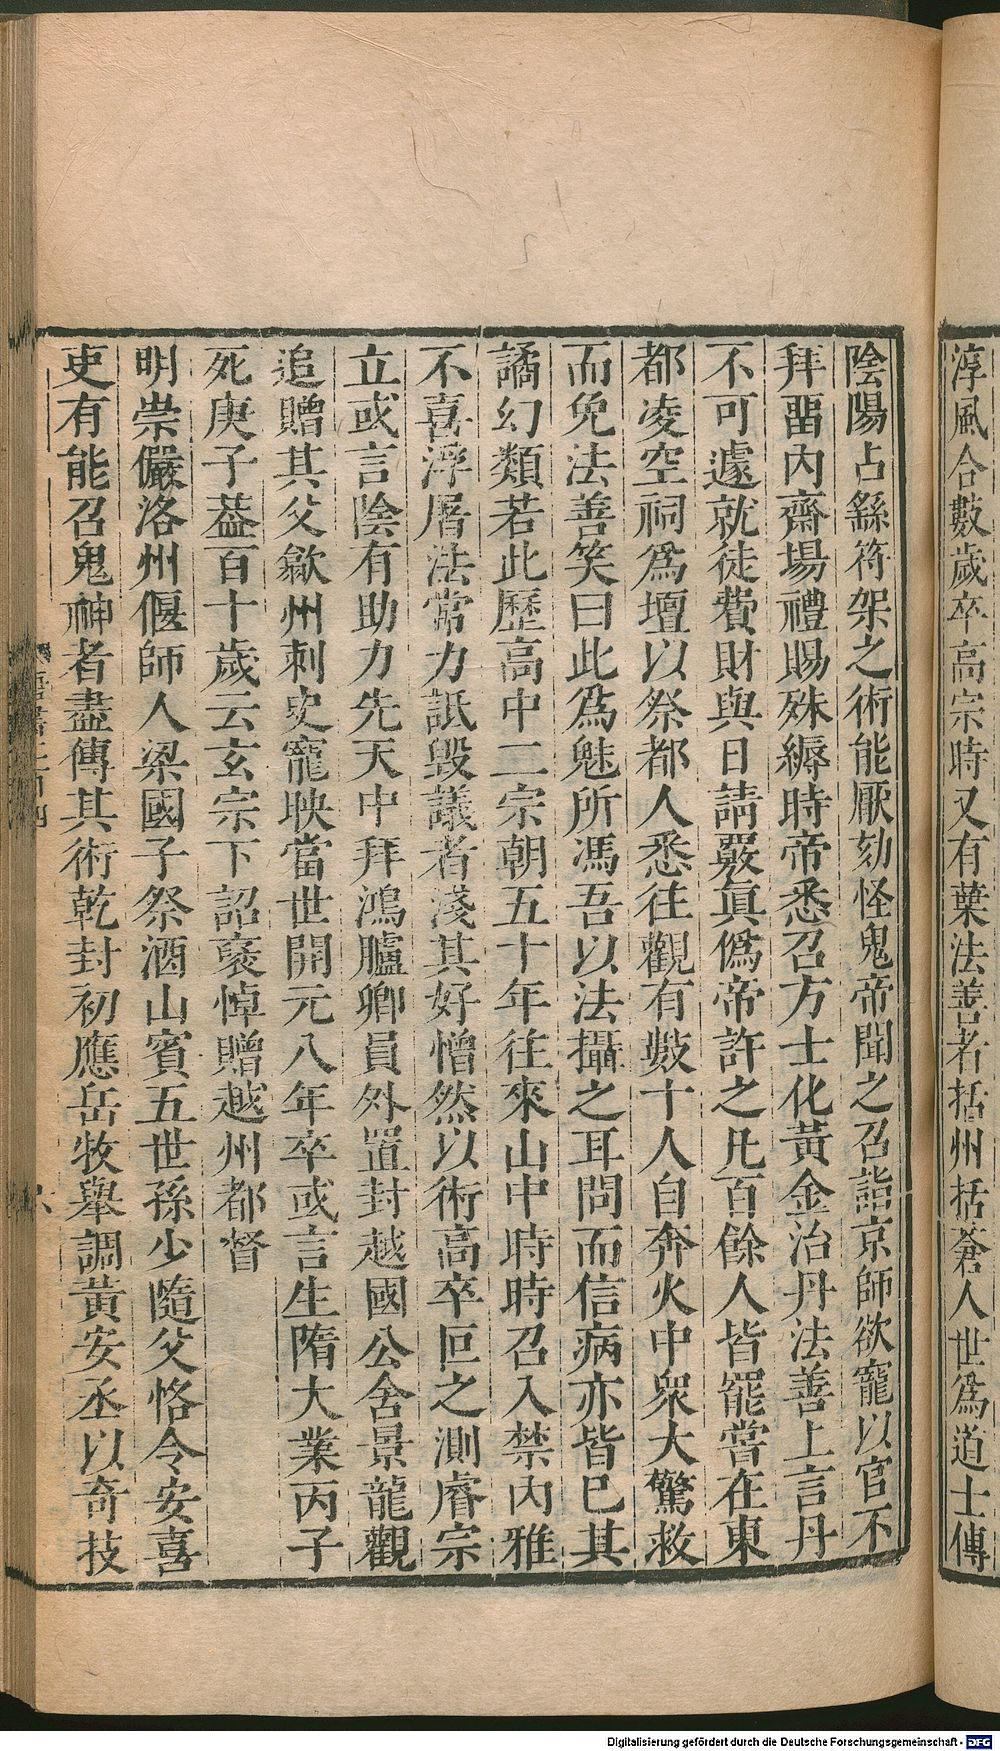 淳風合數歲卒高宗時又有葉法善者括州括蒼人世爲道士傳
陰陽占繇符架之術能厭劾怪鬼帝聞之召詣京師欲寵以官不
拜畱內齋場禮賜殊縟時帝悉召方士化黃金治丹法善上言丹
不可遽就徒費財與日請覈眞僞帝許之凡百餘人皆罷嘗在東
都凌空祠爲壇以祭都人悉往觀有數十人自奔火中衆大驚救
而免法善笑曰此爲魅所馮吾以法攝之耳問而信病亦皆已其
譎幻類若此歷高中二宗朝五十年往來山中時時召入禁內雅
不喜浮屠法常力詆毀議者淺其好憎然以術高卒叵之測睿宗
立或言陰有助力先天中拜鴻臚卿員外置封越國公舍景龍觀
追贈其父歙州刺史寵映當世開元八年卒或言生隋大業丙子
死庚子葢百十歲云玄宗下詔褒悼贈越州都督
明崇儼洛州偃師人梁國子祭酒山賓五世孫少隨父恪令安喜
吏有能召鬼神者盡傳其術乾封初應岳牧舉調黃安丞以奇技
Digitalisierung gefördert durch die Deutsche Forschungsgemeinschaft - DFG